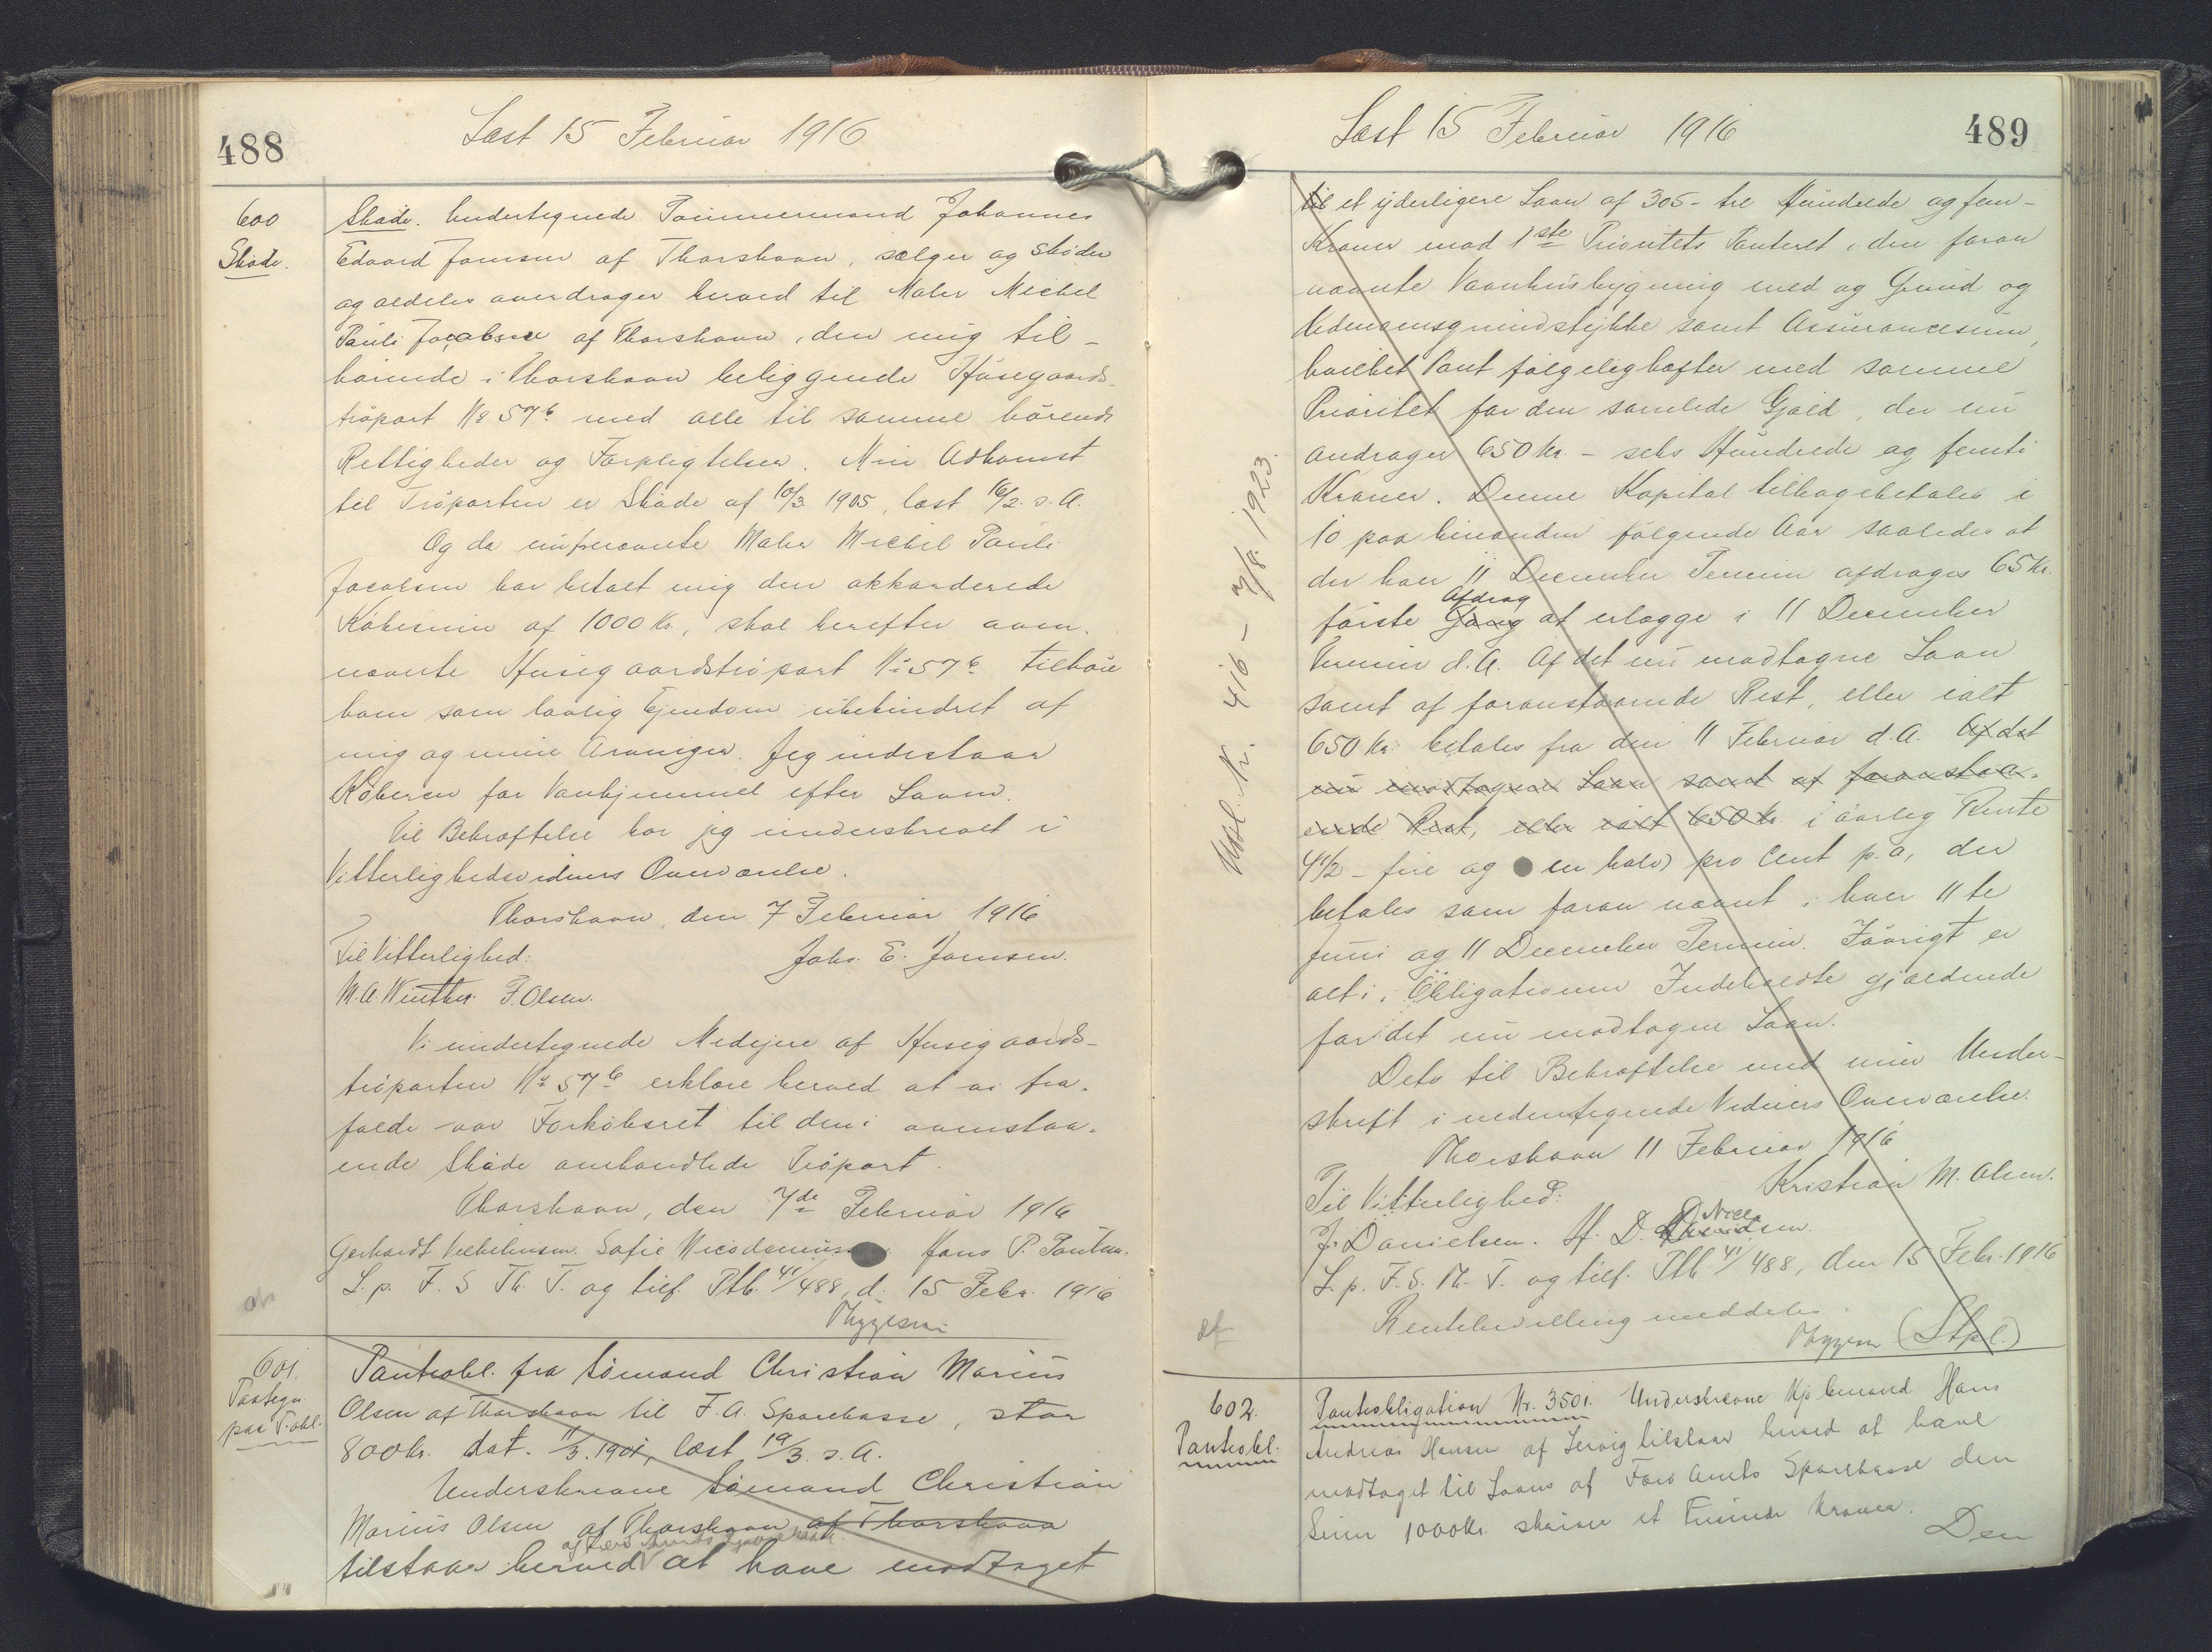 488
Læst 15 Februar 1916
600
Skøde.
Skøde. Undertegnede Tømmermand Johannes
Edvard Joensen af Thorshavn, sælger og skøder
og aldeles overdrager herved til Maler Michel
Pauli Jacobsen af Thorshavn, den mig til-
hørende i Thorshavn beliggende Husegaards-
tröpart No 57b med alle til samme hörende
Rettigheder og Forpligtelser. Min Adkomst
til Tröparten er Skøde af 10/3 1905, læst 16/2. s. A.
Og da nufornævnte Maler Michel Pauli
Jacobsen har betalt mig den akkorderede
Købesum af 1000 Kr., skal herefter oven-
nævnte Husegaardströpart No 57b tilhøre
ham som lovlig Ejendom ubehindret af
mig og mine Arvinger. Jeg indestaar
Køberen for Vanhjemmel efter Loven.
Til Bekræftelse har jeg underskrevet i
Vitterlighedsvidners Overværelse.
Thorshavn, den 7 Februar 1916
Til Vitterlighed: Johs. E. Joensen.
M. A. Winther. F. Olsen.
Vi undertegnede Medejere af Husegaards-
tröparten No 57b erklære herved at vi fra-
falde vor Forkøbsret til den i ovenstaa-
ende Skøde omhandlede Tröpart.
Thorshavn, den 7de Februar 1916
Gerhardt Vilhelmsen. Sofie Nicodemussen Hans P. Poulsen.
L. p. F. S. Th. T. og tilf. Ptb. 41/488, d. 15 Febr. 1916
Thygesen
601.
Paategn.
paa P. obl.
Panteobl. fra Sömand Christian Marius
Olsen af Thorshavn til F. A. Sparekasse, stor
800 kr. dat. 11/3. 1901, læst 19/3. s. A.
Underskrevne Sömand Christian
Marius Olsen af Thorshavn af Thorshavn
af Færø Amts Sparekasse
tilstaar herved at have modtaget
489
Læst 15 Februar 1916
til et yderligere Laan af 305 - tre Hundrede og fem -
Kroner mod 1ste Prioritets Panteret i den foran
nævnte Vaanhusbygning med og Grund og
Udenomsgrundstykke samt Assurancesum,
hvilket Pant følgelig hæfter med samme
Prioritet for den samlede Gjæld, der nu
andrager 650 Kr - seks Hundrede og femti
Kroner. Denne Kapital tilbagebetales i
10 paa hinanden følgende Aar saaledes at
der hver 11 December Termin afdrages 65 Kr.
Afdrag
første Gang at erlægge i 11 December
Termin d. A. Af det nu modtagne Laan
samt af foranstaaende Rest, eller ialt
650 Kr. betales fra den 11 Februar d. A. Af det
nu modtagne Laan samt af foranstaa-
ende Rest, eller ialt 650 Kr. i aarlig Rente
4 1/2 - fire og en halv) pro Cent p. a, der
betales som foran nævnt i hver 11te
Juni og 11 December Termin. Iøvrigt er
alt i Obligationen Indeholdte gjældende
for det nu modtagne Laan.
Dets til Bekræftelse med min Under-
skrift i nedentegnede Vidners Overværelse.
Thorshavn 11 Februar 1916
Til Vitterlighed: Kristian M. Olsen.
J. Danielsen. H. D.
L. p. F. S. Th. T. og tilf. Ptb 41/488, den 15 Febr. 1916
Rentebevilling meddeles.
Thygesen (Stpl.)
Udsl. Nr. 416 - 7/8. 1923.
602.
Panteobl.
Panteobligation Nr. 3501. Underskrevne Kjøbmand Hans
Andreas Hansen af Servig tilstaar herved at have
modtaget til Laans af Færø Amts Sparekasse den
Sum 1000 Kr. skriver et Tusinde Kroner.
Den